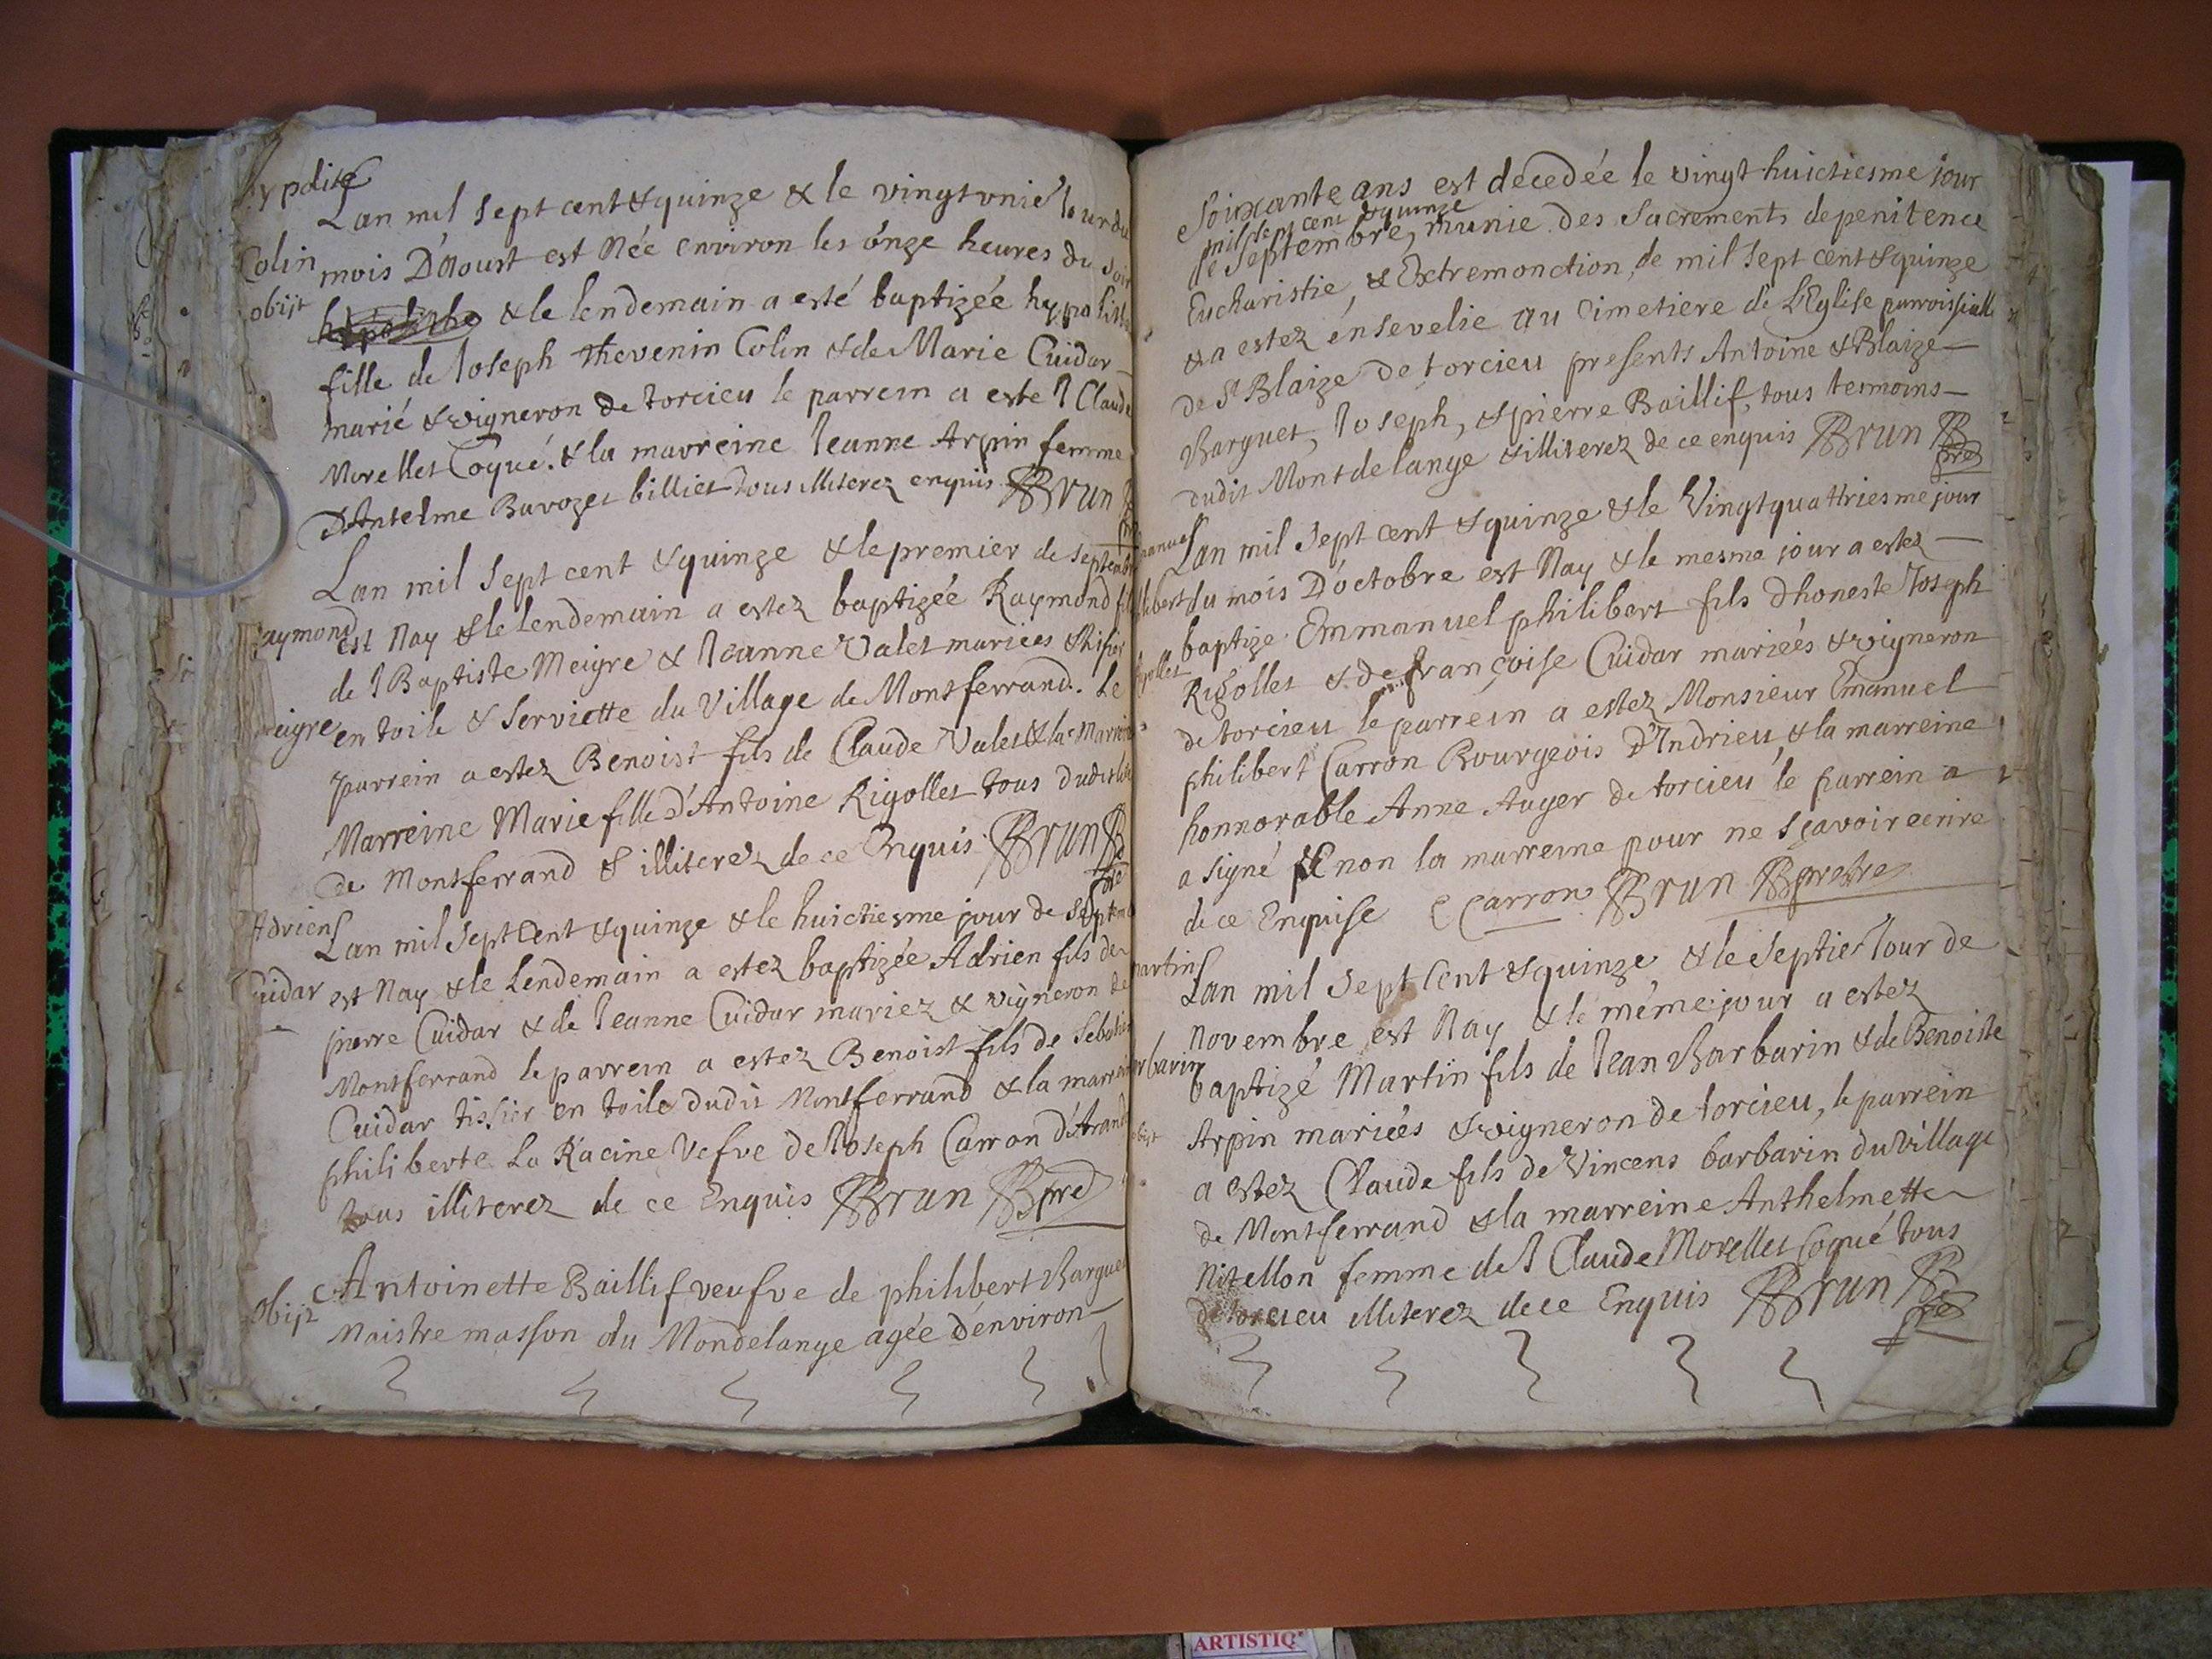 Lan mil sept cent & quinze & le vingtunie Iour du
Colin mois Daoust est Née environ les onze heures du soir
obijt & le lendemain a esté baptizée hypolitte
fille de Ioseph thevenin Colin & de Marie Cuidar
marié & vigneron de torcieu le parrein a este I Claude
Morellet Coqué. & la marreine Ieanne Arpin femme
D'Antelme Bavozet billiet tous illiterez enquis Brun
Lan mil sept cent & quinze & le premier de septembre
aymond est Nay & le lendemain a estez baptizée Raymond fils
de I Baptiste Meigre & Ieanne Valet mariées & tisier
eigre en toile & serviette du Village de Montferrand. Le
parrein a estez Benoist fils de Claude Valet & la Marrei
Marreine Marie fille d'Antoine Rigollet tous dudit lieu
de Montferrand & illiterez de ce Enquis Brun
pre
Adrien Lan mil sept cent & quinze & le huictiesme jour de septemb
Cuidar est Nay & le lendemain a estez baptizée Adrien fils de
pierre Cuidar & de Ieanne Cuidar mariez & vigneron de
Montferrand le parrein a estez Benoist fils de Sebastien
Cuidar tissier en toile dudit Montferrand & la marrei
philiberte La Racine Vefve de Ioseph Carron d'Arand
tous illiterez de ce Enquis Brun pre
Antoinette Baillif veufve de philibert Barguet
obijt Maistre masson du Mondelange agée d'environ
Soixante ans est decedée le vingt huictiesme jour
mil sept cent & quinze
de Septembre, munie des Sacrements de penitence
Eucharistie, & Extremonction, de mil sept cent & quinze
& a estez ensevelie au Cimetiere de L'Eglise parroissialle
de St Blaize de torcieu presents Antoine & Blaize
Barguet, Ioseph, & pierre Baillif, tous tesmoins
dudit Montdelange & illiterez de ce enquis Brun
pre
Lan mil sept cent & quinze & le Vingtquattriesme jour
libert du mois D'octobre est Nay & le mesme jour a estez
baptize Emmanuel philibert fils d'honeste Joseph
Rigollet & de françoise Cuidar mariées & vigneron
de torcieu le parrein a estez Monsieur Emanuel
philibert Carron Bourgeois D'Andrieu, & la marreine
honnorable Anne Auger de torcieu le parrein a
a signé & non la marreine pour ne sçavoir ecrire
de ce Enquise Carron Brun prestre
martin Lan mil Sept Cent & quinze & le Septie Iour de
novembre est Nay & le même jour a estez
barbarin baptizé Martin fils de Iean Barbarin & de Benoiste
obijt Arpin mariés & vigneron de torcieu, le parrein
a estez Claude fils de Vincens barbarin du Village
de Montferrand & la marreine Anthelmette
Nitellon femme de I Claude Morellet Coqué tous
de torcieu illiterez de ce Enquis Brun
pre
ARTISTIQ